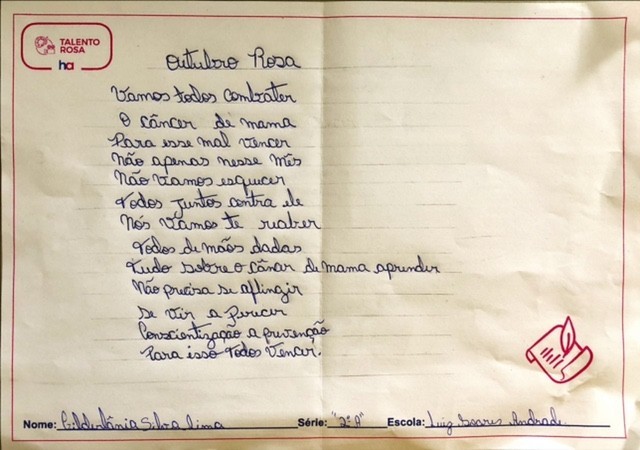 TALENTO
ROSA
ha
Outubro Rosa
Vamos todos combater
O câncer de mama
Para esse mal vencer
Não apenas nesse mês
Não vamos esquecer
Todos juntos contra ele
Nós vamos te receber
Todos de mãos dadas
Tudo sobre o câncer de mama aprender
Não precisa se aflingir
Se vir a perecer
Conscientização a prevenção
Para isso todos vencer.
Nome: Gildenlânia Silva Lima Série: "2º A" Escola: Luiz Soares Andrade